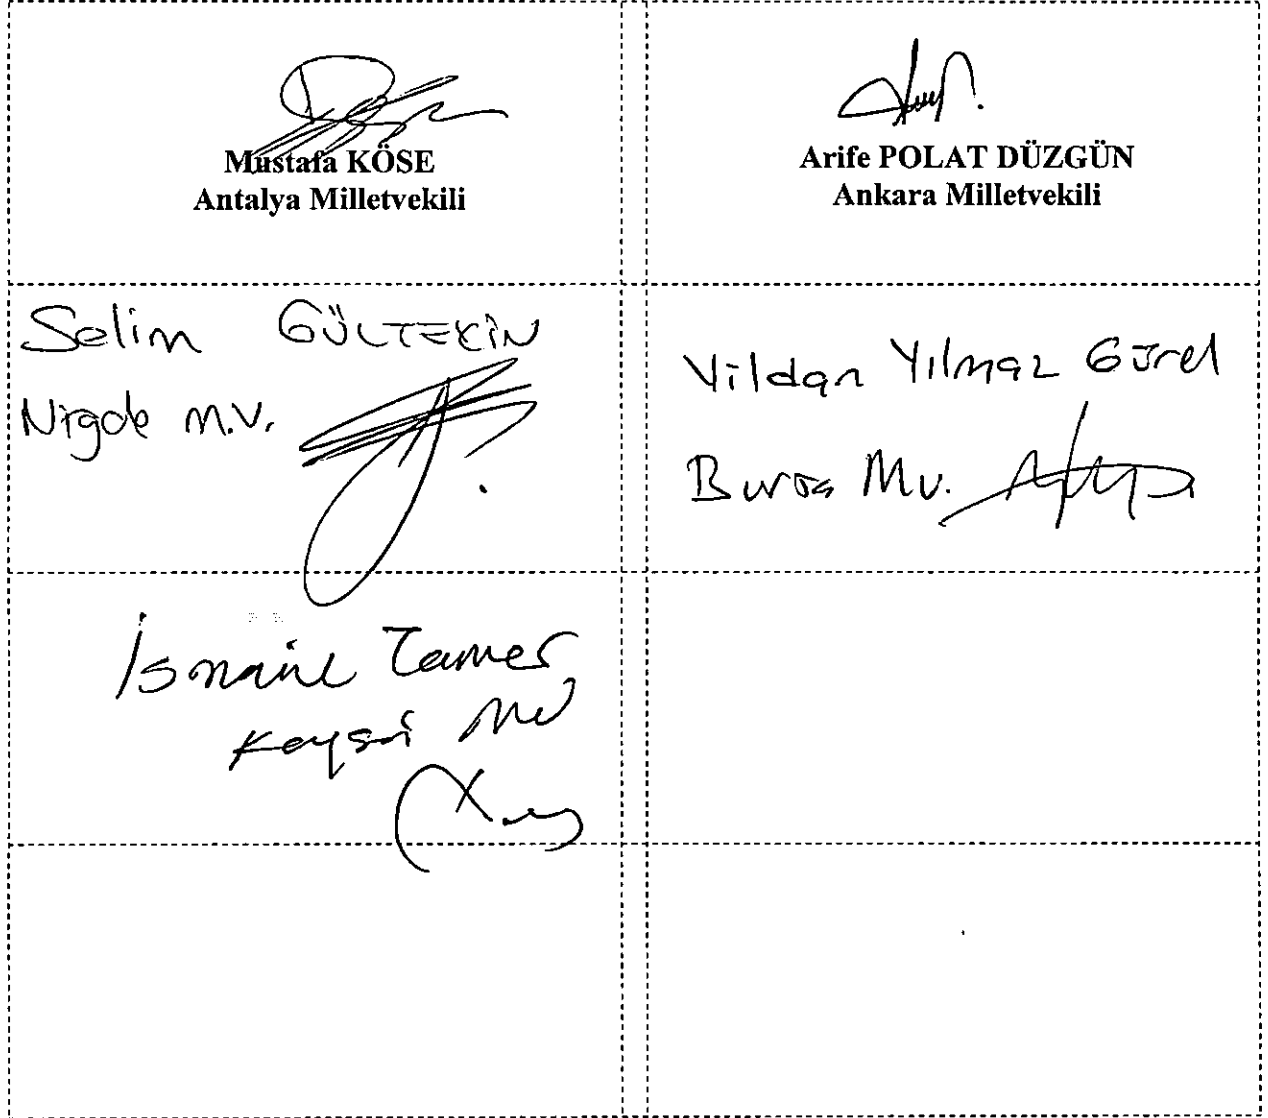 Mustafa KÖSE
Antalya Milletvekili
Arife POLAT DÜZGÜN
Ankara Milletvekili
Selim GÜLTEKİN
Niğde M.V.
Vildan Yılmaz Gürel
Bursa Mv.
İsmail Tamer
Kayseri MV